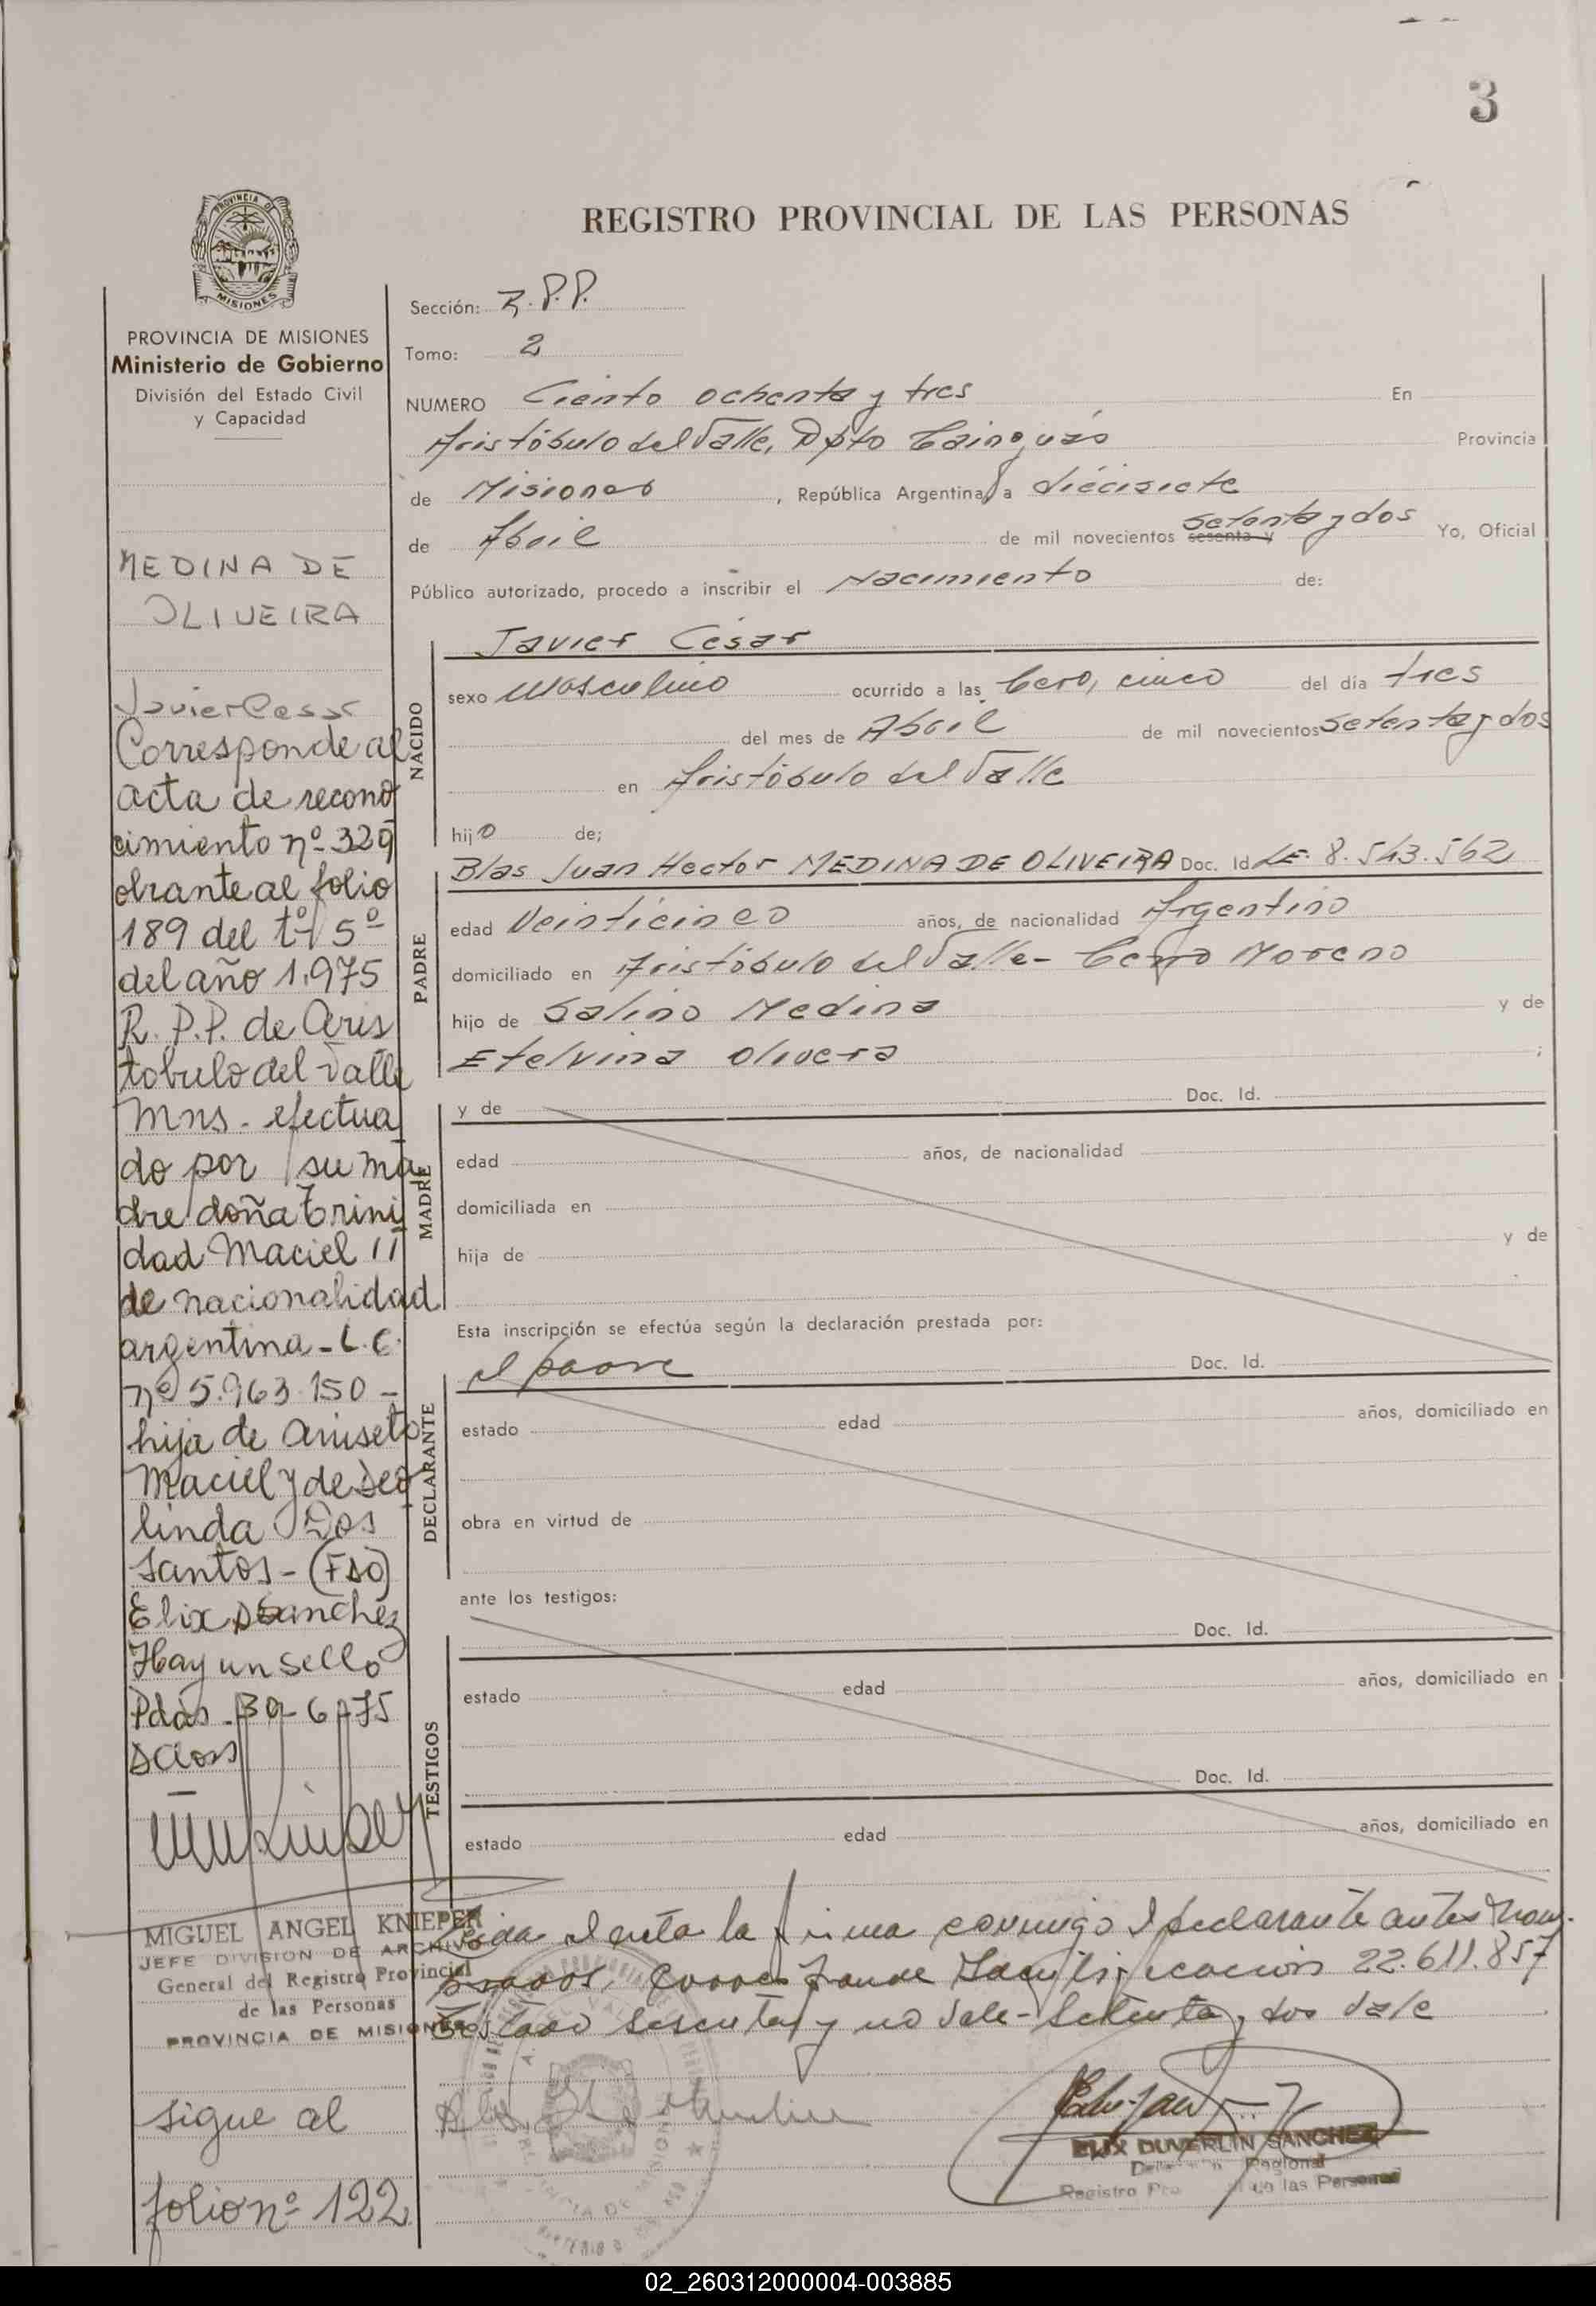 3
REGISTRO PROVINCIAL DE LAS PERSONAS
PROVINCIA DE
MISIONES
PROVINCIA DE MISIONES
Ministerio de Gobierno
División del Estado Civil
y Capacidad
MEDINA DE
OLIVEIRA
Javier Cesar
Corresponde al
acta de recono
cimiento nº 329
obrante al folio
189 del tº 5º
del año 1.975
R. P.P. de Aris
tobulo del Valle
Mns. efectua
do por su ma
dre doña Trini
dad Maciel
de nacionalidad
argentina - L.C.
nº 5.963.150 -
hija de Aniseto
Maciel y de Deo
linda Dos
Santos - (Fdo)
Elix D Sanchez
Hay un sello
Pdas - 30-6-75
MIGUEL ANGEL KNIEPER
JEFE DIVISION DE ARCHIVO
General del Registro Provincial
de las Personas
PROVINCIA DE MISIONES
sigue al
folio nº 122
Sección: R.P.P.
Tomo: 2
NUMERO Ciento ochenta y tres En
Aristóbulo del Valle, Dpto Cainguás Provincia
de Misiones , República Argentina, a diecisiete
de Abril de mil novecientos sesenta y setenta y dos Yo, Oficial
Público autorizado, procedo a inscribir el Nacimiento de:
NACIDO
Javier César
sexo Masculino ocurrido a las Cero, cinco del día tres
del mes de Abril de mil novecientos setenta y dos
en Aristóbulo del Valle
hijo de;
PADRE
Blas Juan Hector MEDINA DE OLIVEIRA Doc. Id. LE. 8.543.562
edad Veinticinco años, de nacionalidad Argentino
domiciliado en Aristóbulo del Valle - Cerro Moreno
hijo de Salino Medina y de
Etelvina Olivera ;
MADRE
y de Doc. Id.
edad años, de nacionalidad
domiciliada en
hija de y de
Esta inscripción se efectúa según la declaración prestada por:
DECLARANTE
el padre Doc. Id.
estado edad años, domiciliado en
obra en virtud de
ante los testigos:
TESTIGOS
Doc. Id.
estado edad años, domiciliado en
Doc. Id.
estado edad años, domiciliado en
Leida el acta la firma conmigo el declarante antes nom-
22.611.857
Testado sesenta y no vale - Setenta y dos vale
ELIX DUVERLIN SANCHEZ
Regional
Registro de las Personas
02_260312000004-003885